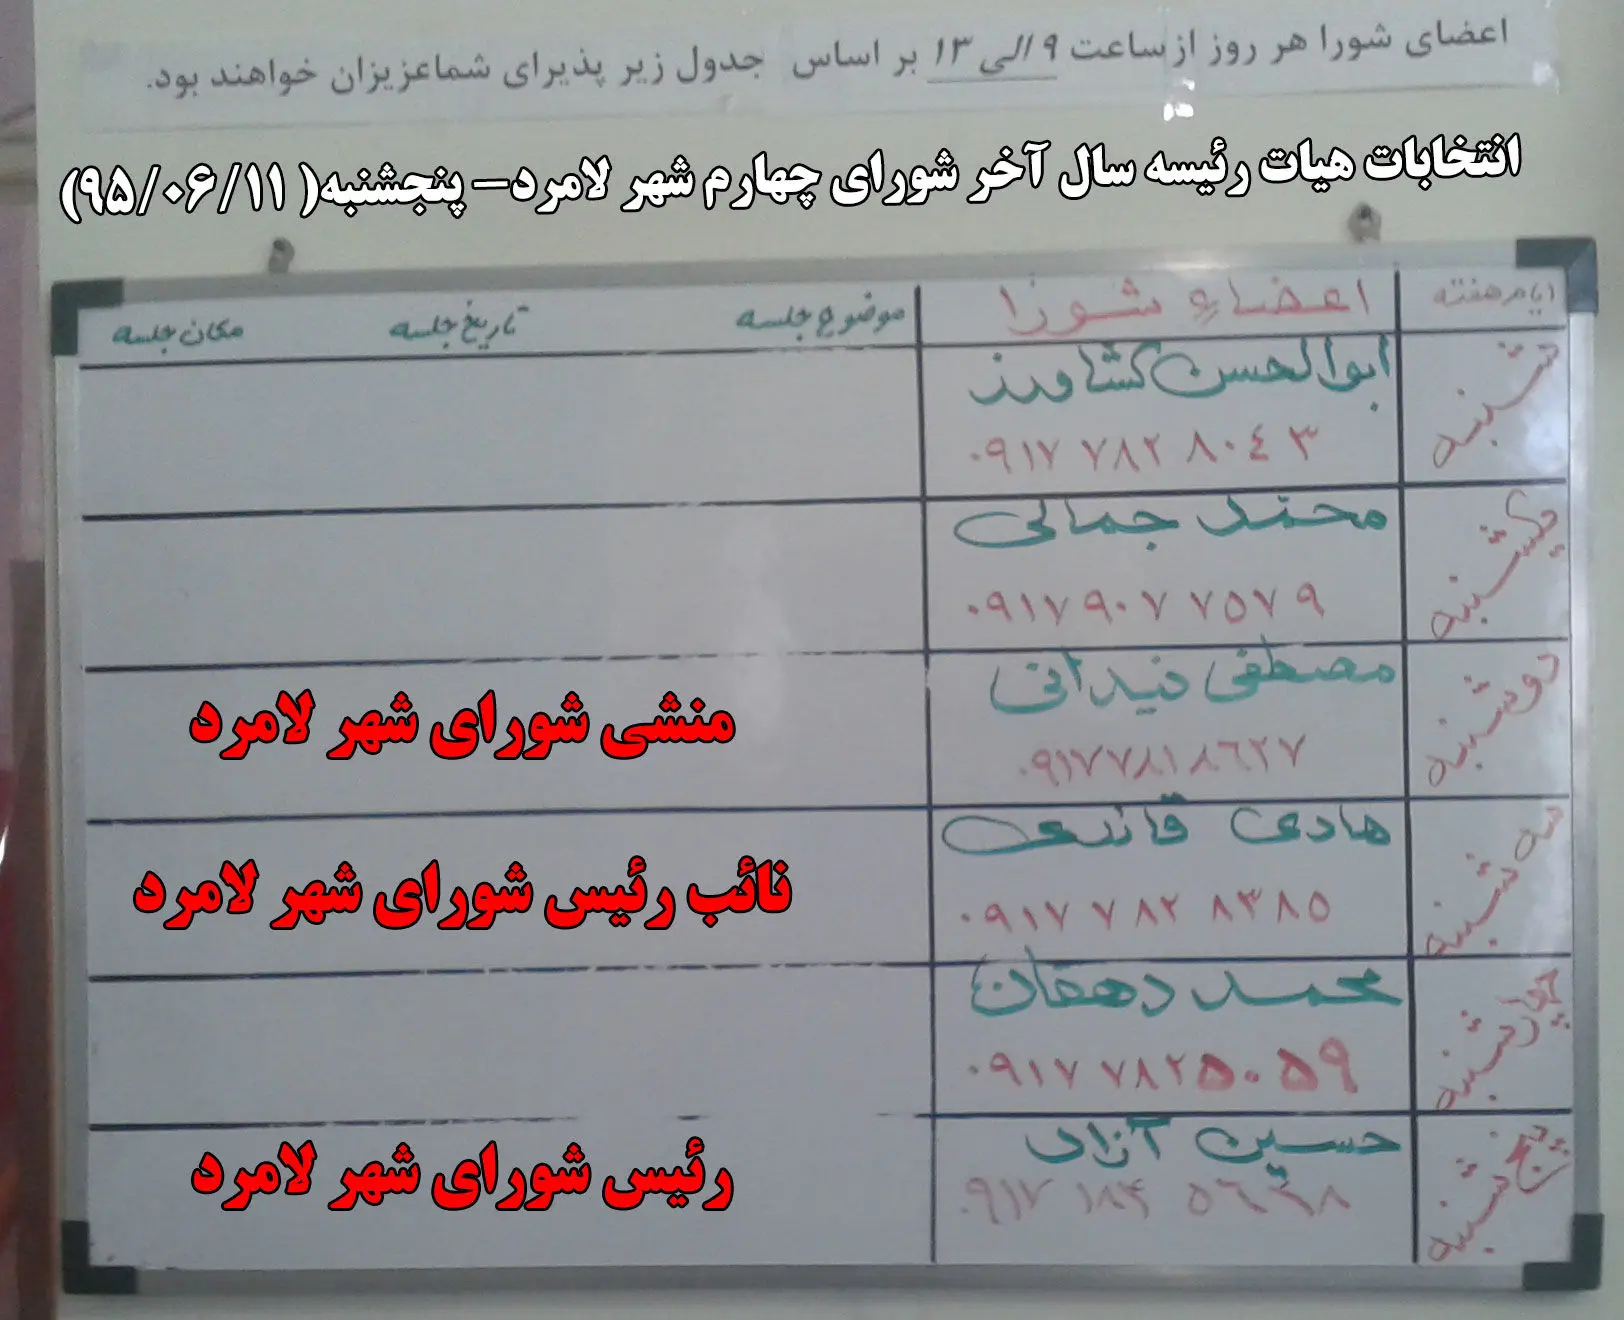 اعضای شورا هر روز از ساعت ۹ الی ۱۳ بر اساس جدول زیر پذیرای شما عزیزان خواهند بود.
انتخابات هیات رئیسه سال آخر شورای چهارم شهر لامرد- پنجشنبه( ۹۵/۰۶/۱۱)
ایام هفته اعضاء شورا موضوع جلسه تاریخ جلسه مکان جلسه
شنبه ابوالحسن کشاورز
۰۹۱۷ ۷۸۲ ۸۰۴۳
یکشنبه محمد جمالی
۰۹۱۷ ۹۰۷ ۷۵۷۹
دوشنبه مصطفی
۰۹۱۷۷۸۱۸۶۲۷
منشی شورای شهر لامرد
سه شنبه هادی قائدی
۰۹۱۷ ۷۸۲ ۸۳۸۵
نائب رئیس شورای شهر لامرد
چهارشنبه محمد دهقان
۰۹۱۷ ۷۸۲۵۰۵۹
پنج شنبه حسین آزاد
۰۹۱۷ ۱۸۴
رئیس شورای شهر لامرد